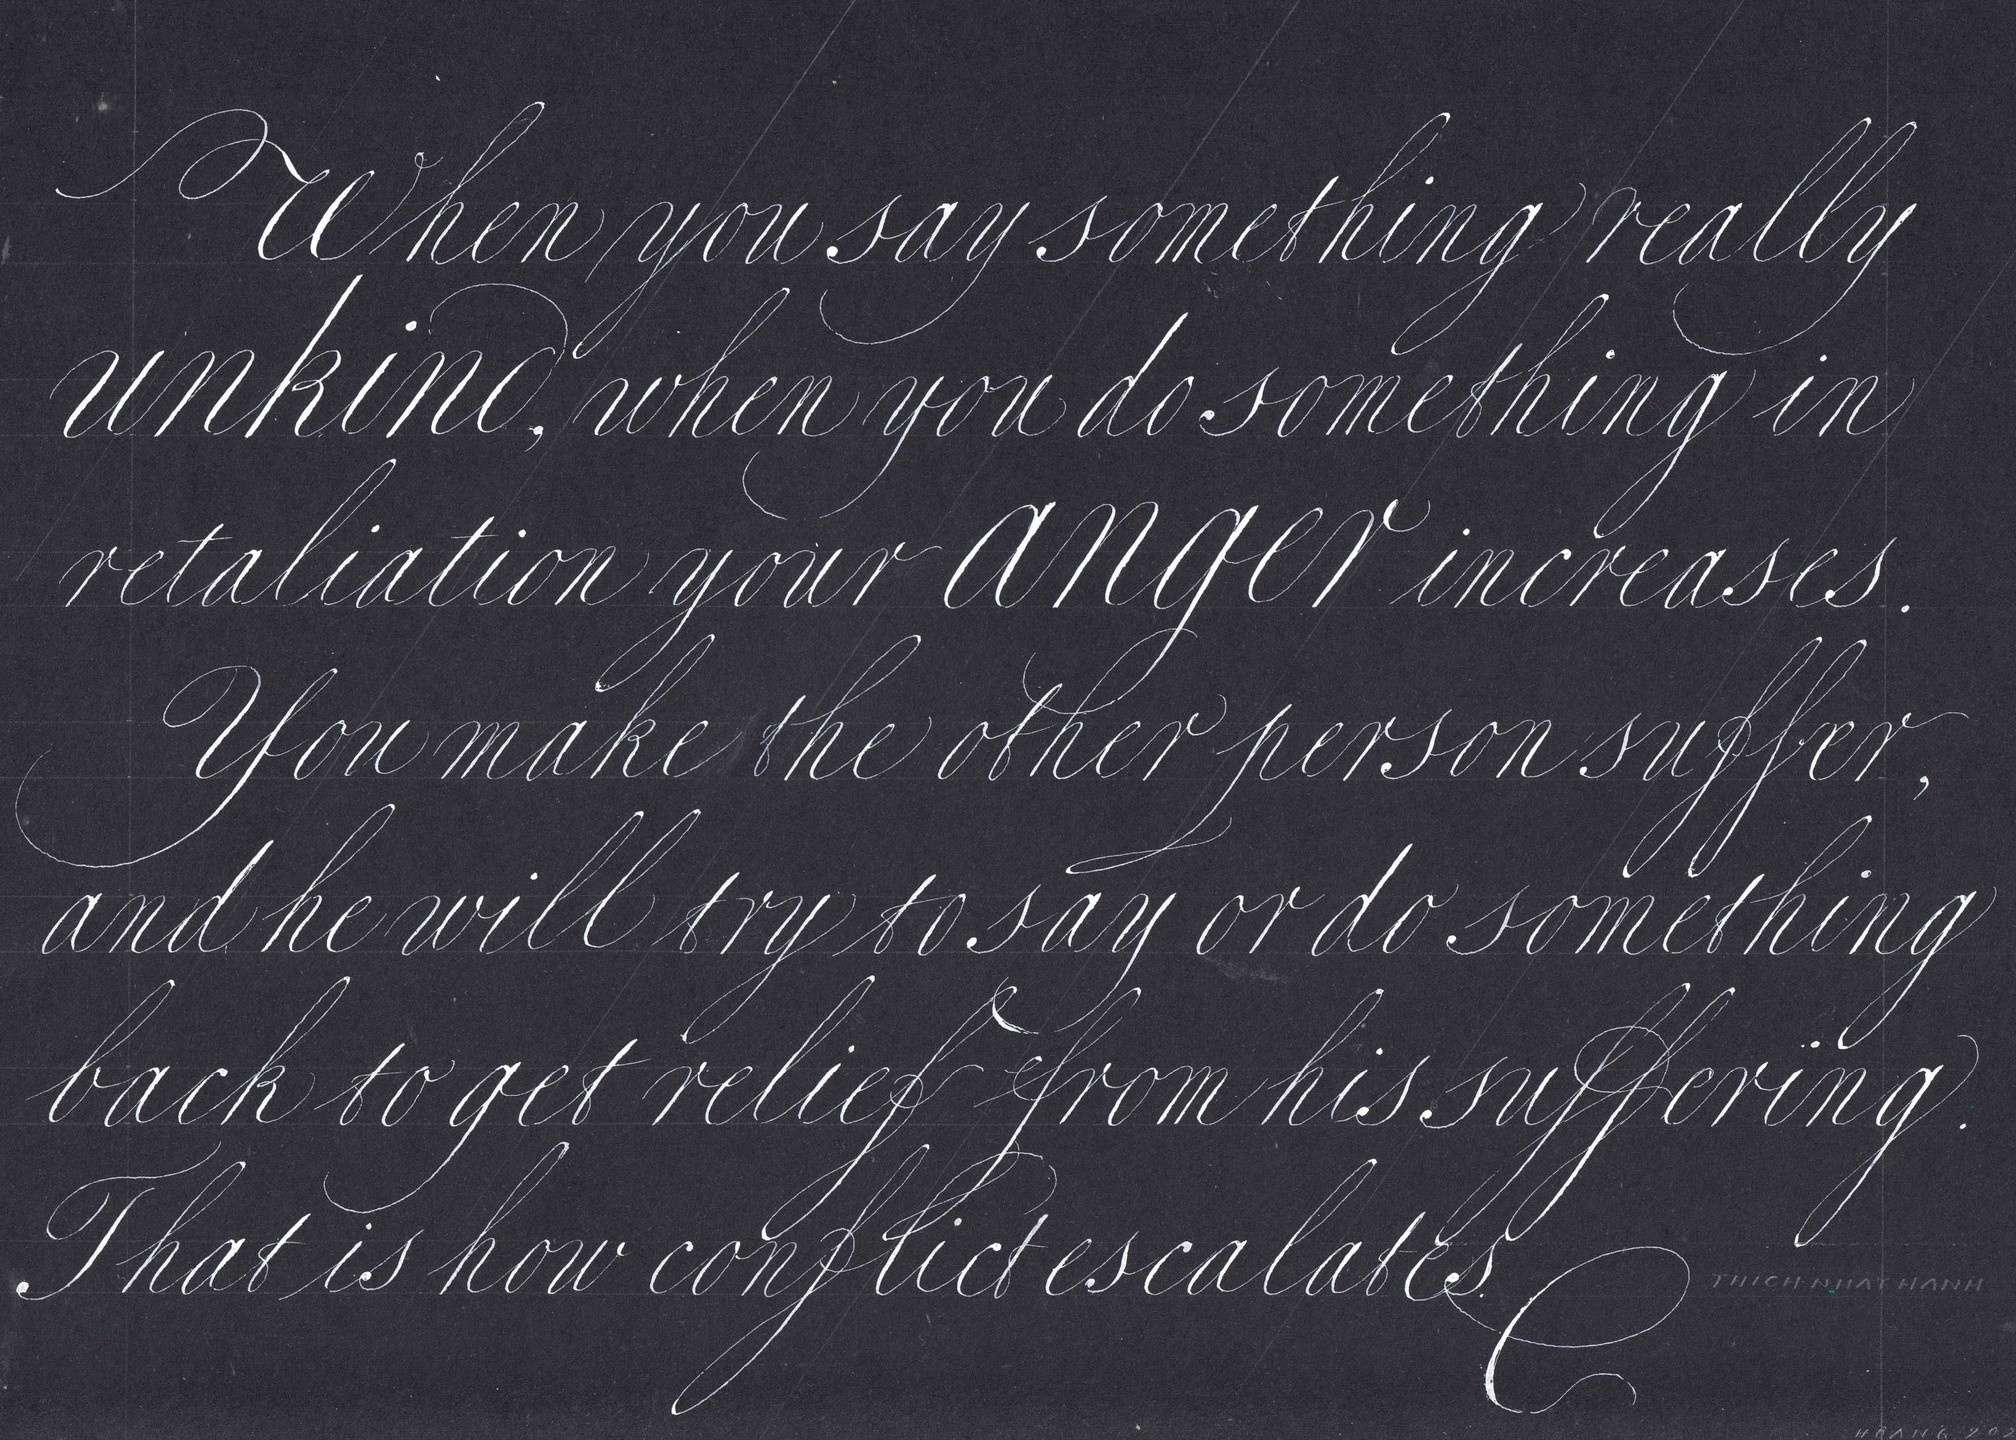 When you say something really
unkind, when you do something in
retaliation your anger increases.
You make the other person suffer,
and he will try to say or do something
back to get relief from his suffering.
That is how conflict escalates.
THICH NHAT HANH